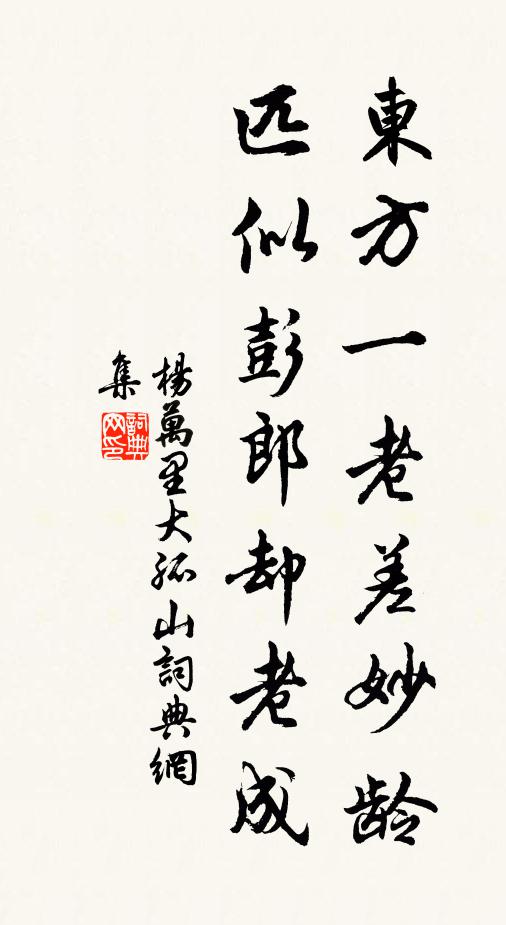 東方一老差妙龄
匹似彭郎却老成
楊萬里大孤山詞典網
集
詞典
网印